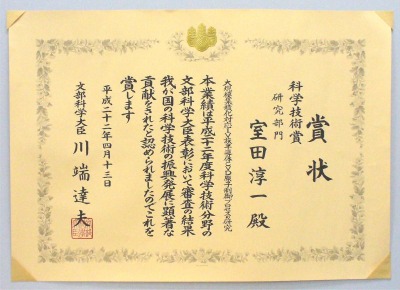 賞状
科学技術賞
研究部門
室田淳一殿
本業績は平成二十二年度科学技術分野の
文部科学大臣表彰において審査の結果
我が国の科学技術の振興発展に顕著な
貢献をされたと認められましたのでこれを
賞します
平成二十二年四月十三日
文部科学大臣 川端達夫